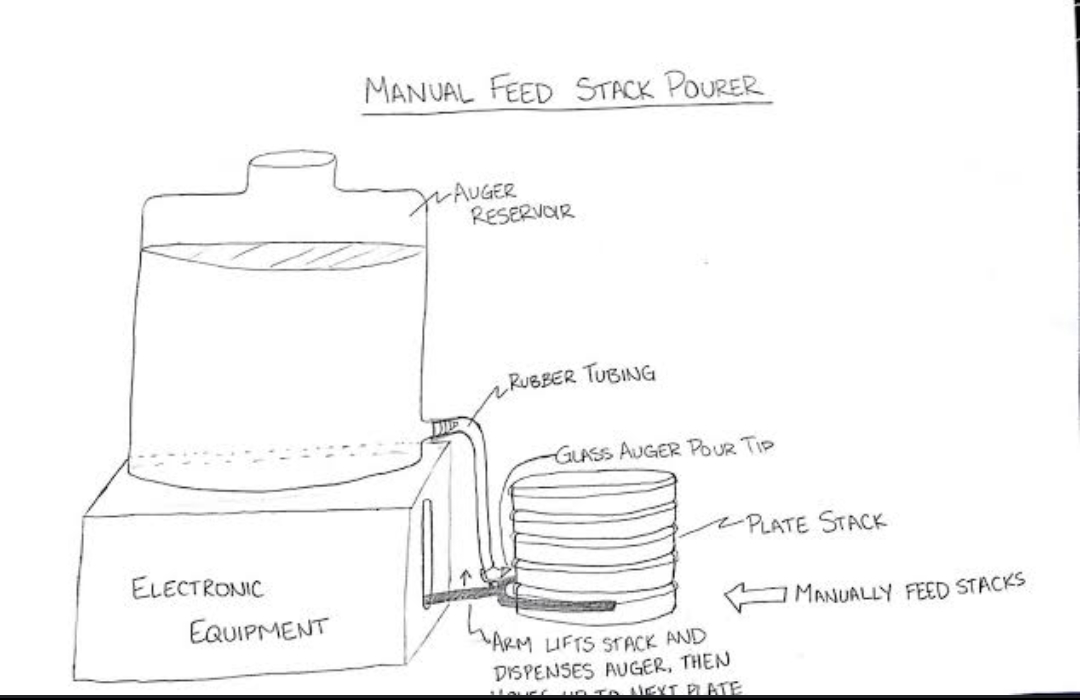 MANUAL FEED STACK POURER
AUGER
RESERVOIR
RUBBER TUBING
GLASS AUGER POUR TIP
PLATE STACK
MANUALLY FEED STACKS
ELECTRONIC
EQUIPMENT
ARM LIFTS STACK AND
DISPENSES AUGER, THEN
MOVES UP TO NEXT PLATE